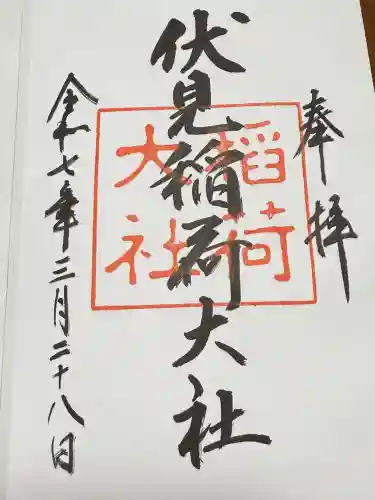 奉拝
伏見稲荷大社
稲荷
大社
令和七年三月二十八日